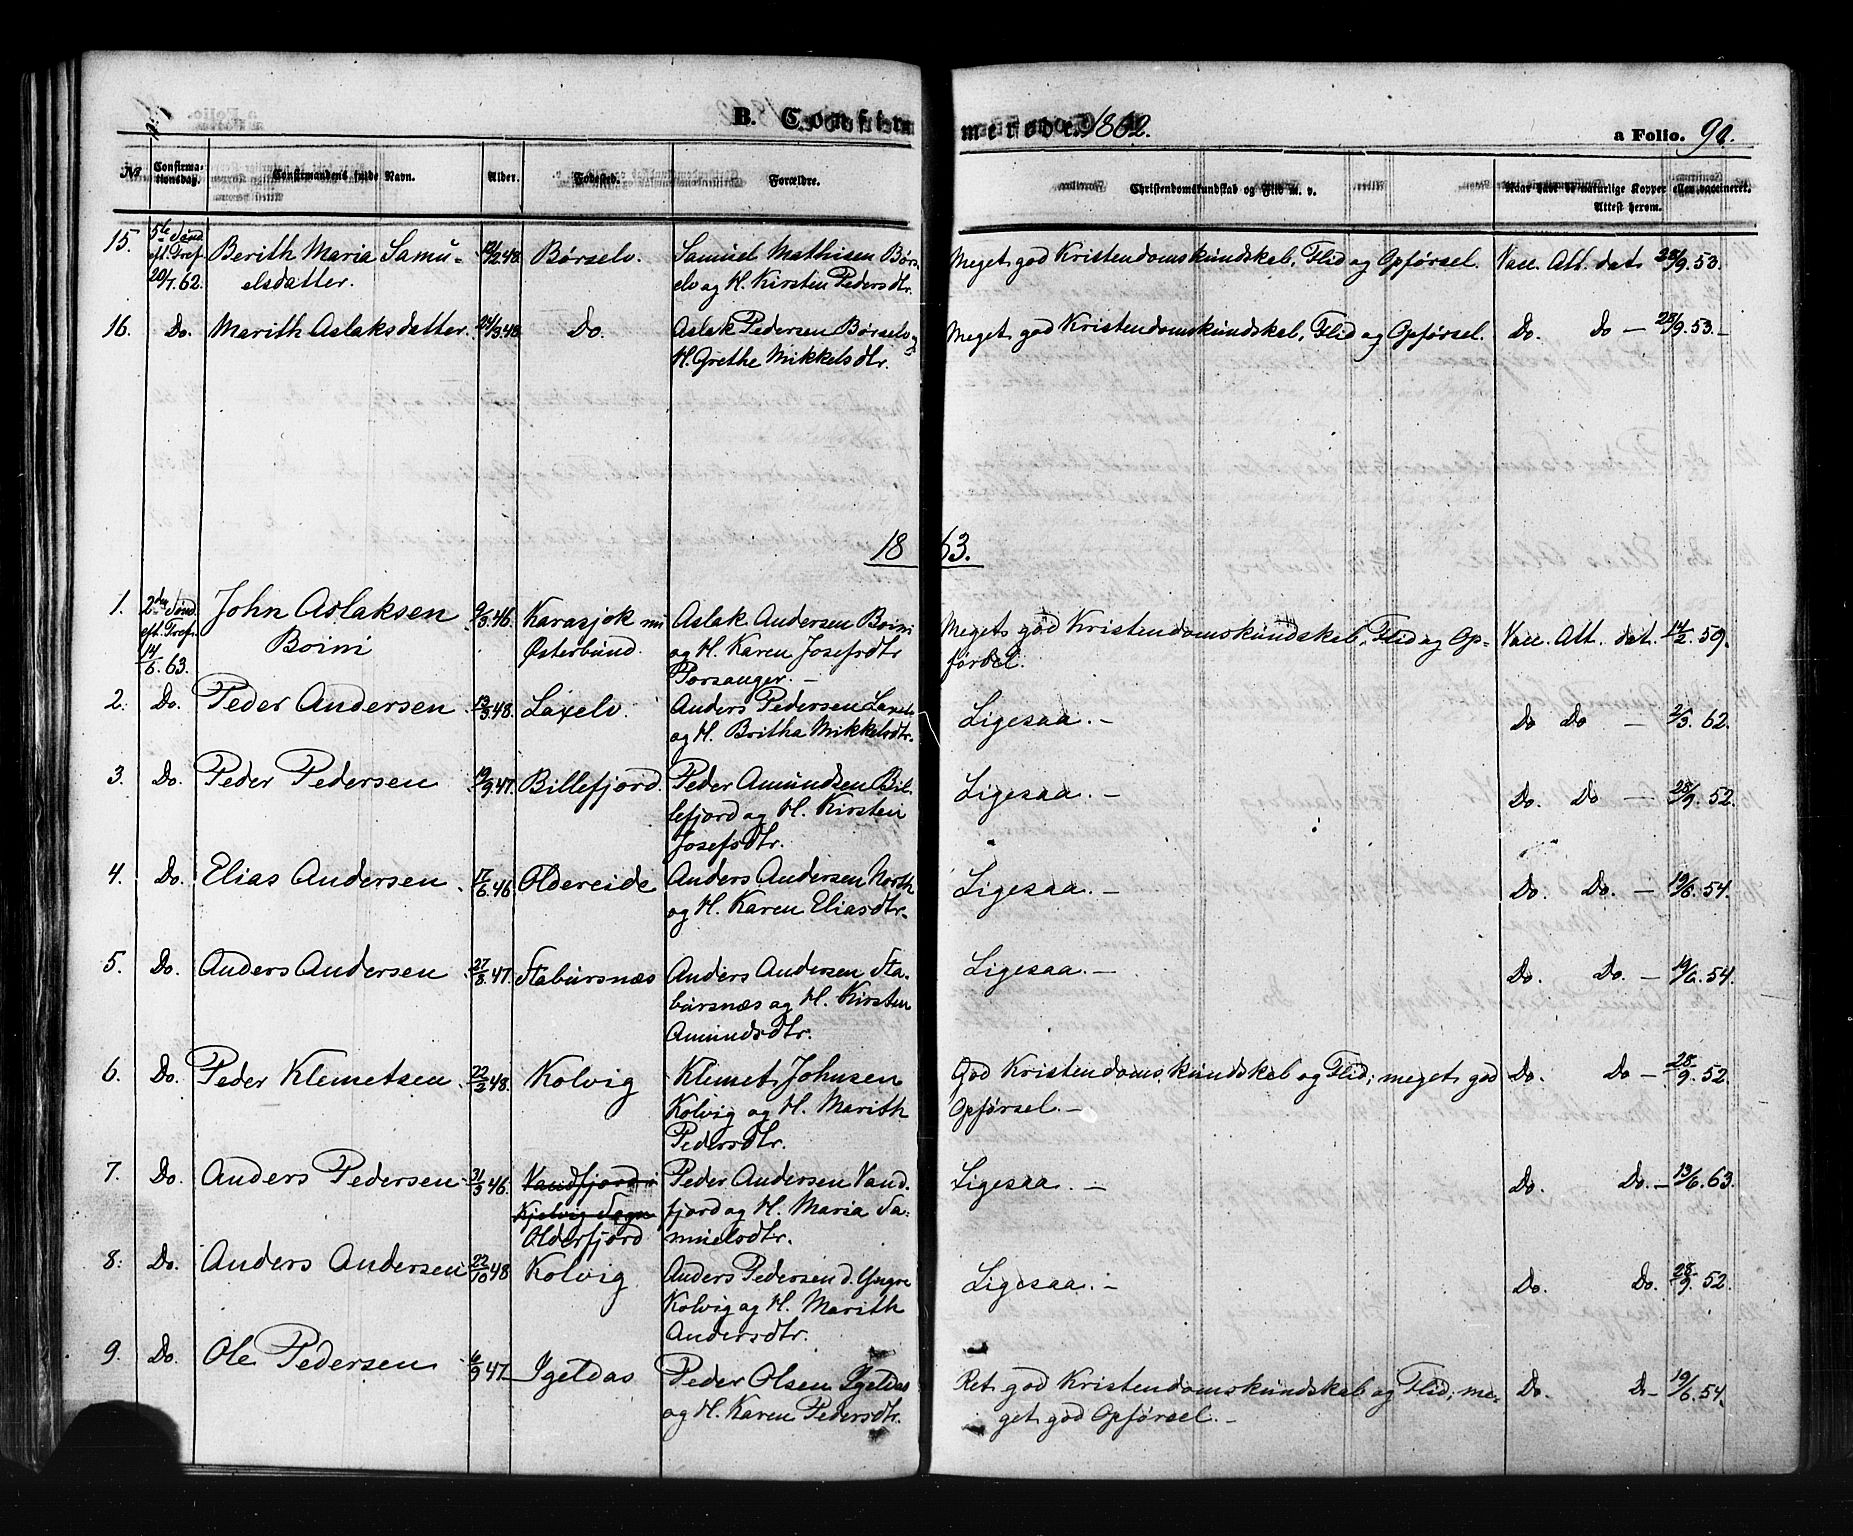 B. Confirmerede. 1862. a Folio. 90.
No Confirmationsdag. Confirmandens fulde Navn. Alder. Fødested. Forældre. Christendomskundskab og Flid m. v. Naar havt de naturlige Kopper eller vaccineret. Attest herom.
15. 5te Sønd. eft. Tref. 20/7.62. Berith Maria Samu- 12/2 48. Børselv. Samuel Mathisen Børs- Meget god Kristendomskundskab, Flid og Opførsel. Vacc. Att. dat. 28/9. 53.
elsdatter. elv og H. Kirsten Pedersdtr.
16. Do. Marith Aslaksdatter. 24/3.48. Do. Aslak Pedersen Børselv og Meget god Kristendomskundskab, Flid og Opførsel. Do. Do — 28/9. 53.—
H. Grethe Mikkelsdtr.
1863.
1. 2den Sønd. eft. Tref. 14/6.63. John Aslaksen 9/3.46. Karasjok nu Aslak Andersen Boini Meget god Kristendomskundskab, Flid og Op- Vacc. Att. dat. 14/2. 59.
Boini Østerbund. og H. Karen Josefsdtr førsel.
Porsanger. —
2. Do. Peder Andersen 13/3.48. Laxelv. Anders Pedersen Laxelv Ligesaa. — Do Do — 2/3. 62.
og H. Britha Mikkelsdtr.
3. Do. Peder Pedersen 19/9.47. Billefjord. Peder Amundsen Bil- Ligesaa. — Do. Do — 28/9. 52.
lefjord og H. Kirsten
Josefsdtr.
4. Do. Elias Andersen 17/6.46 Oldereide Anders Andersen North Ligesaa. — Do. Do. — 19/6. 54.
og H. Karen Eliasdtr.
5. Do. Anders Andersen 27/8.47. Stabursnæs Anders Andersen Sta- Ligesaa. — Do. Do. — 19/6. 54.
bursnæs og H. Kirsten
Amundsdtr.
6. Do. Peder Klemetsen 22/2 48. Kolvig Klemet Johnsen God Kristendomskundskab og Flid; meget god Do. Do — 28/9. 52.
Kolvig og H. Marith Opførsel. —
Pedersdtr.
7. Do. Anders Pedersen 31/3 46. Vandfjord i Peder Andersen Vand- Ligesaa. — Do. Do. — 13/6. 63.
Kjelvig Sogn fjord og H. Maria Sa-
Olderfjord muelsdtr.
8. Do. Anders Andersen 22/10 48 Kolvig Anders Pedersen d. Yngre Ligesaa. — Do. Do. 28/9. 52.
Kolvig og H. Marith
Andersdtr.
9. Do. Ole Pedersen 6/9 47. Igeldas Peder Olsen Igeldas Ret god Kristendomskundskab og Flid; me- Do. D— 19/6. 54.
og H. Karen Pedersdtr. get god Opførsel. —